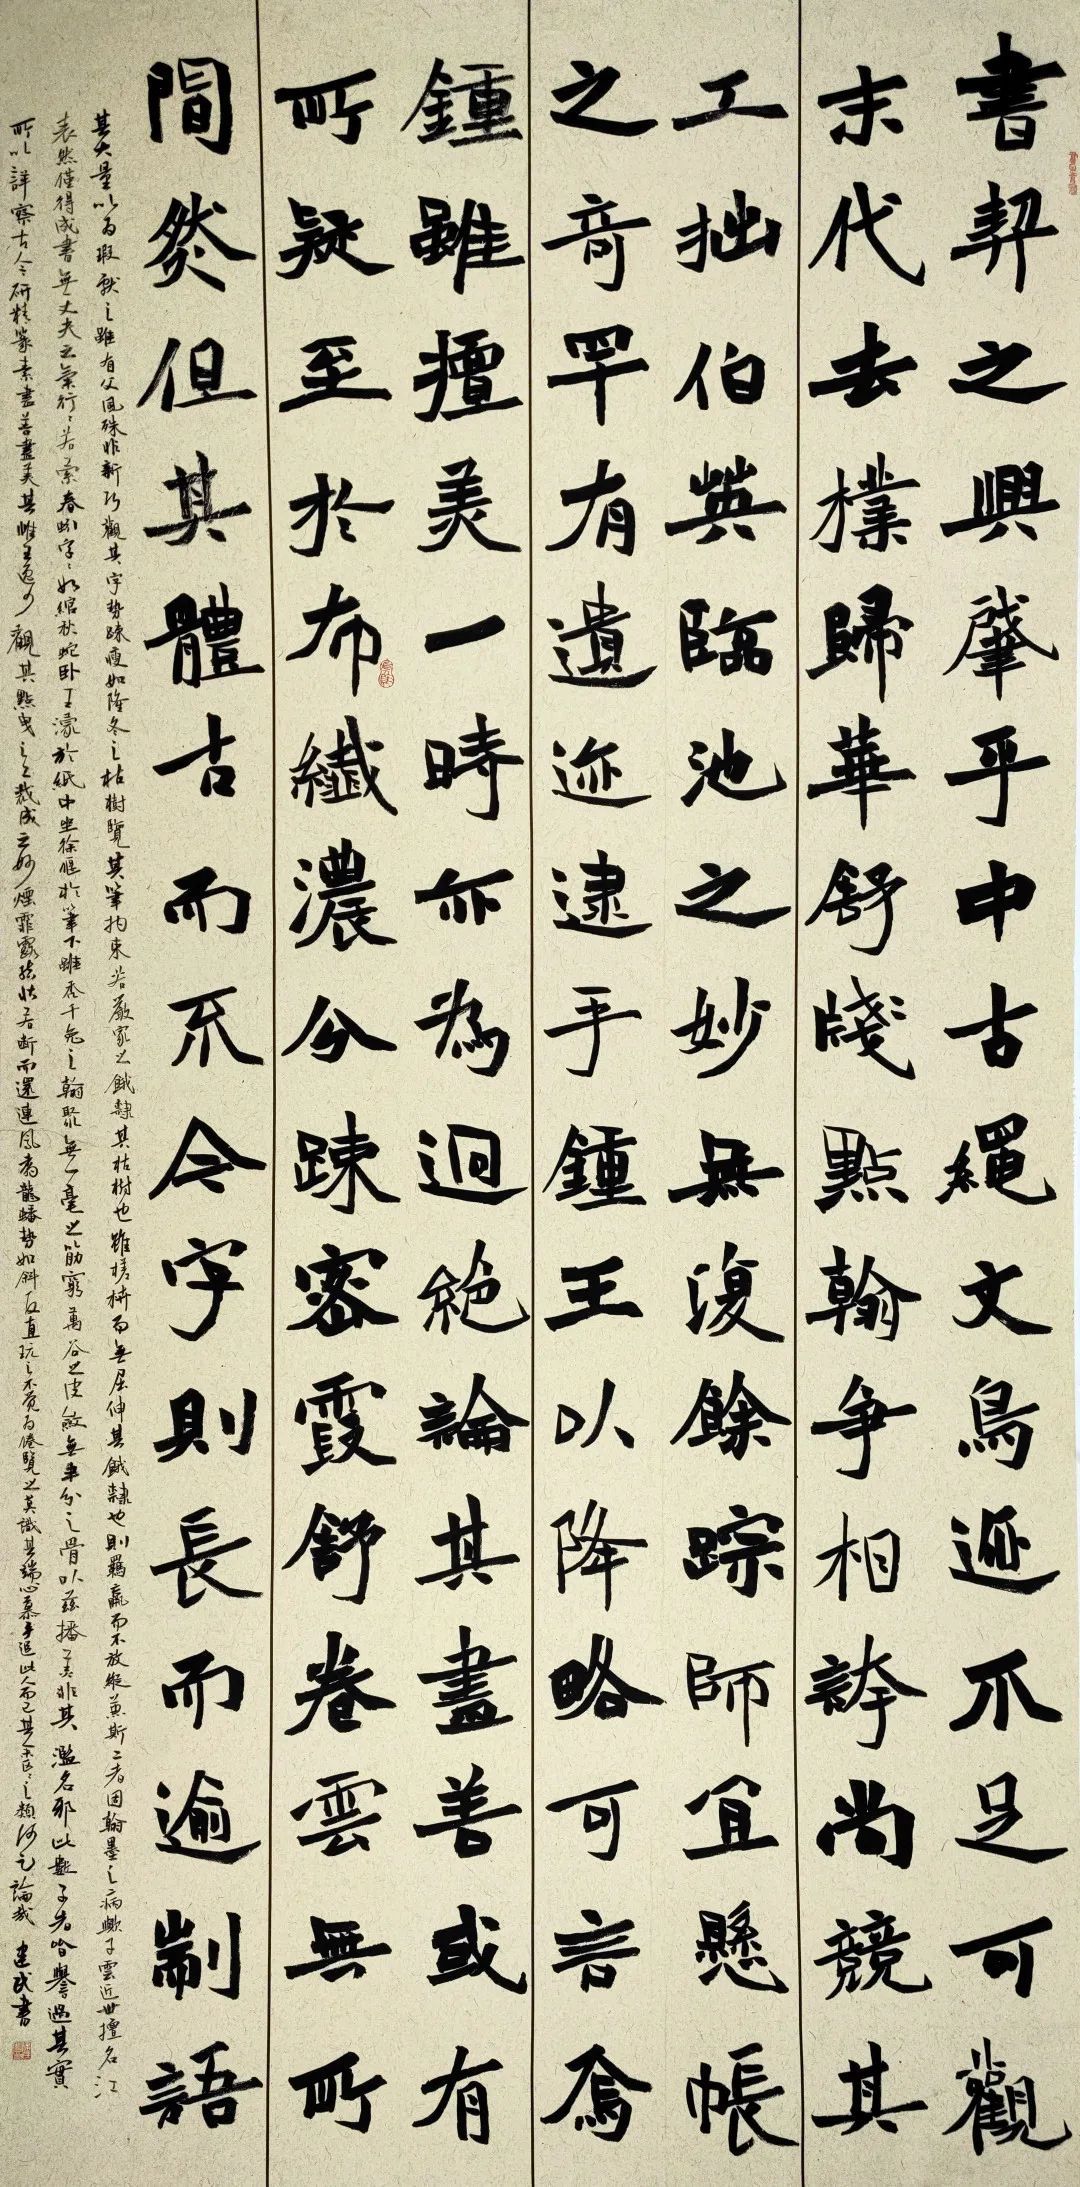 書契之興肇乎中古繩文鳥迹不足可觀
末代去樸歸華舒牋點翰爭相誇尚競其
工拙伯英臨池之妙無復餘踪師宜懸帳
之奇罕有遺迹逮乎鍾王以降略可言焉
鍾雖擅美一時亦為迥絕論其盡善或有
所疑至於布纖濃分疎密霞舒卷雲無所
間然但其體古而不今字則長而逾制語
其大量以為瑕獻之雖有父風殊非新巧觀其字勢疎瘦如隆冬之枯樹覽其筆拘束若嚴家之餓隸其枯樹也雖槎枿而無屈伸其餓隸也則羈羸而不放縱兼斯二者固翰墨之病歟子雲近世擅名江
表然僅得成書無丈夫之氣行〻若縈春蚓字〻如綰秋蛇臥王濛於紙中坐徐偃於筆下雖禿千兔之翰聚無一毫之筋窮萬谷之皮斂無半分之骨以茲播美非其濫名邪此數子者皆譽過其實
所以詳察古今研精篆素盡善盡美其惟王逸少觀其點曳之工裁成之妙煙霏露結狀若斷而還連鳳翥龍蟠勢如斜反直玩之不覺為倦覽之莫識其端心慕手追此人而已其餘區〻之類何足論哉 建民書